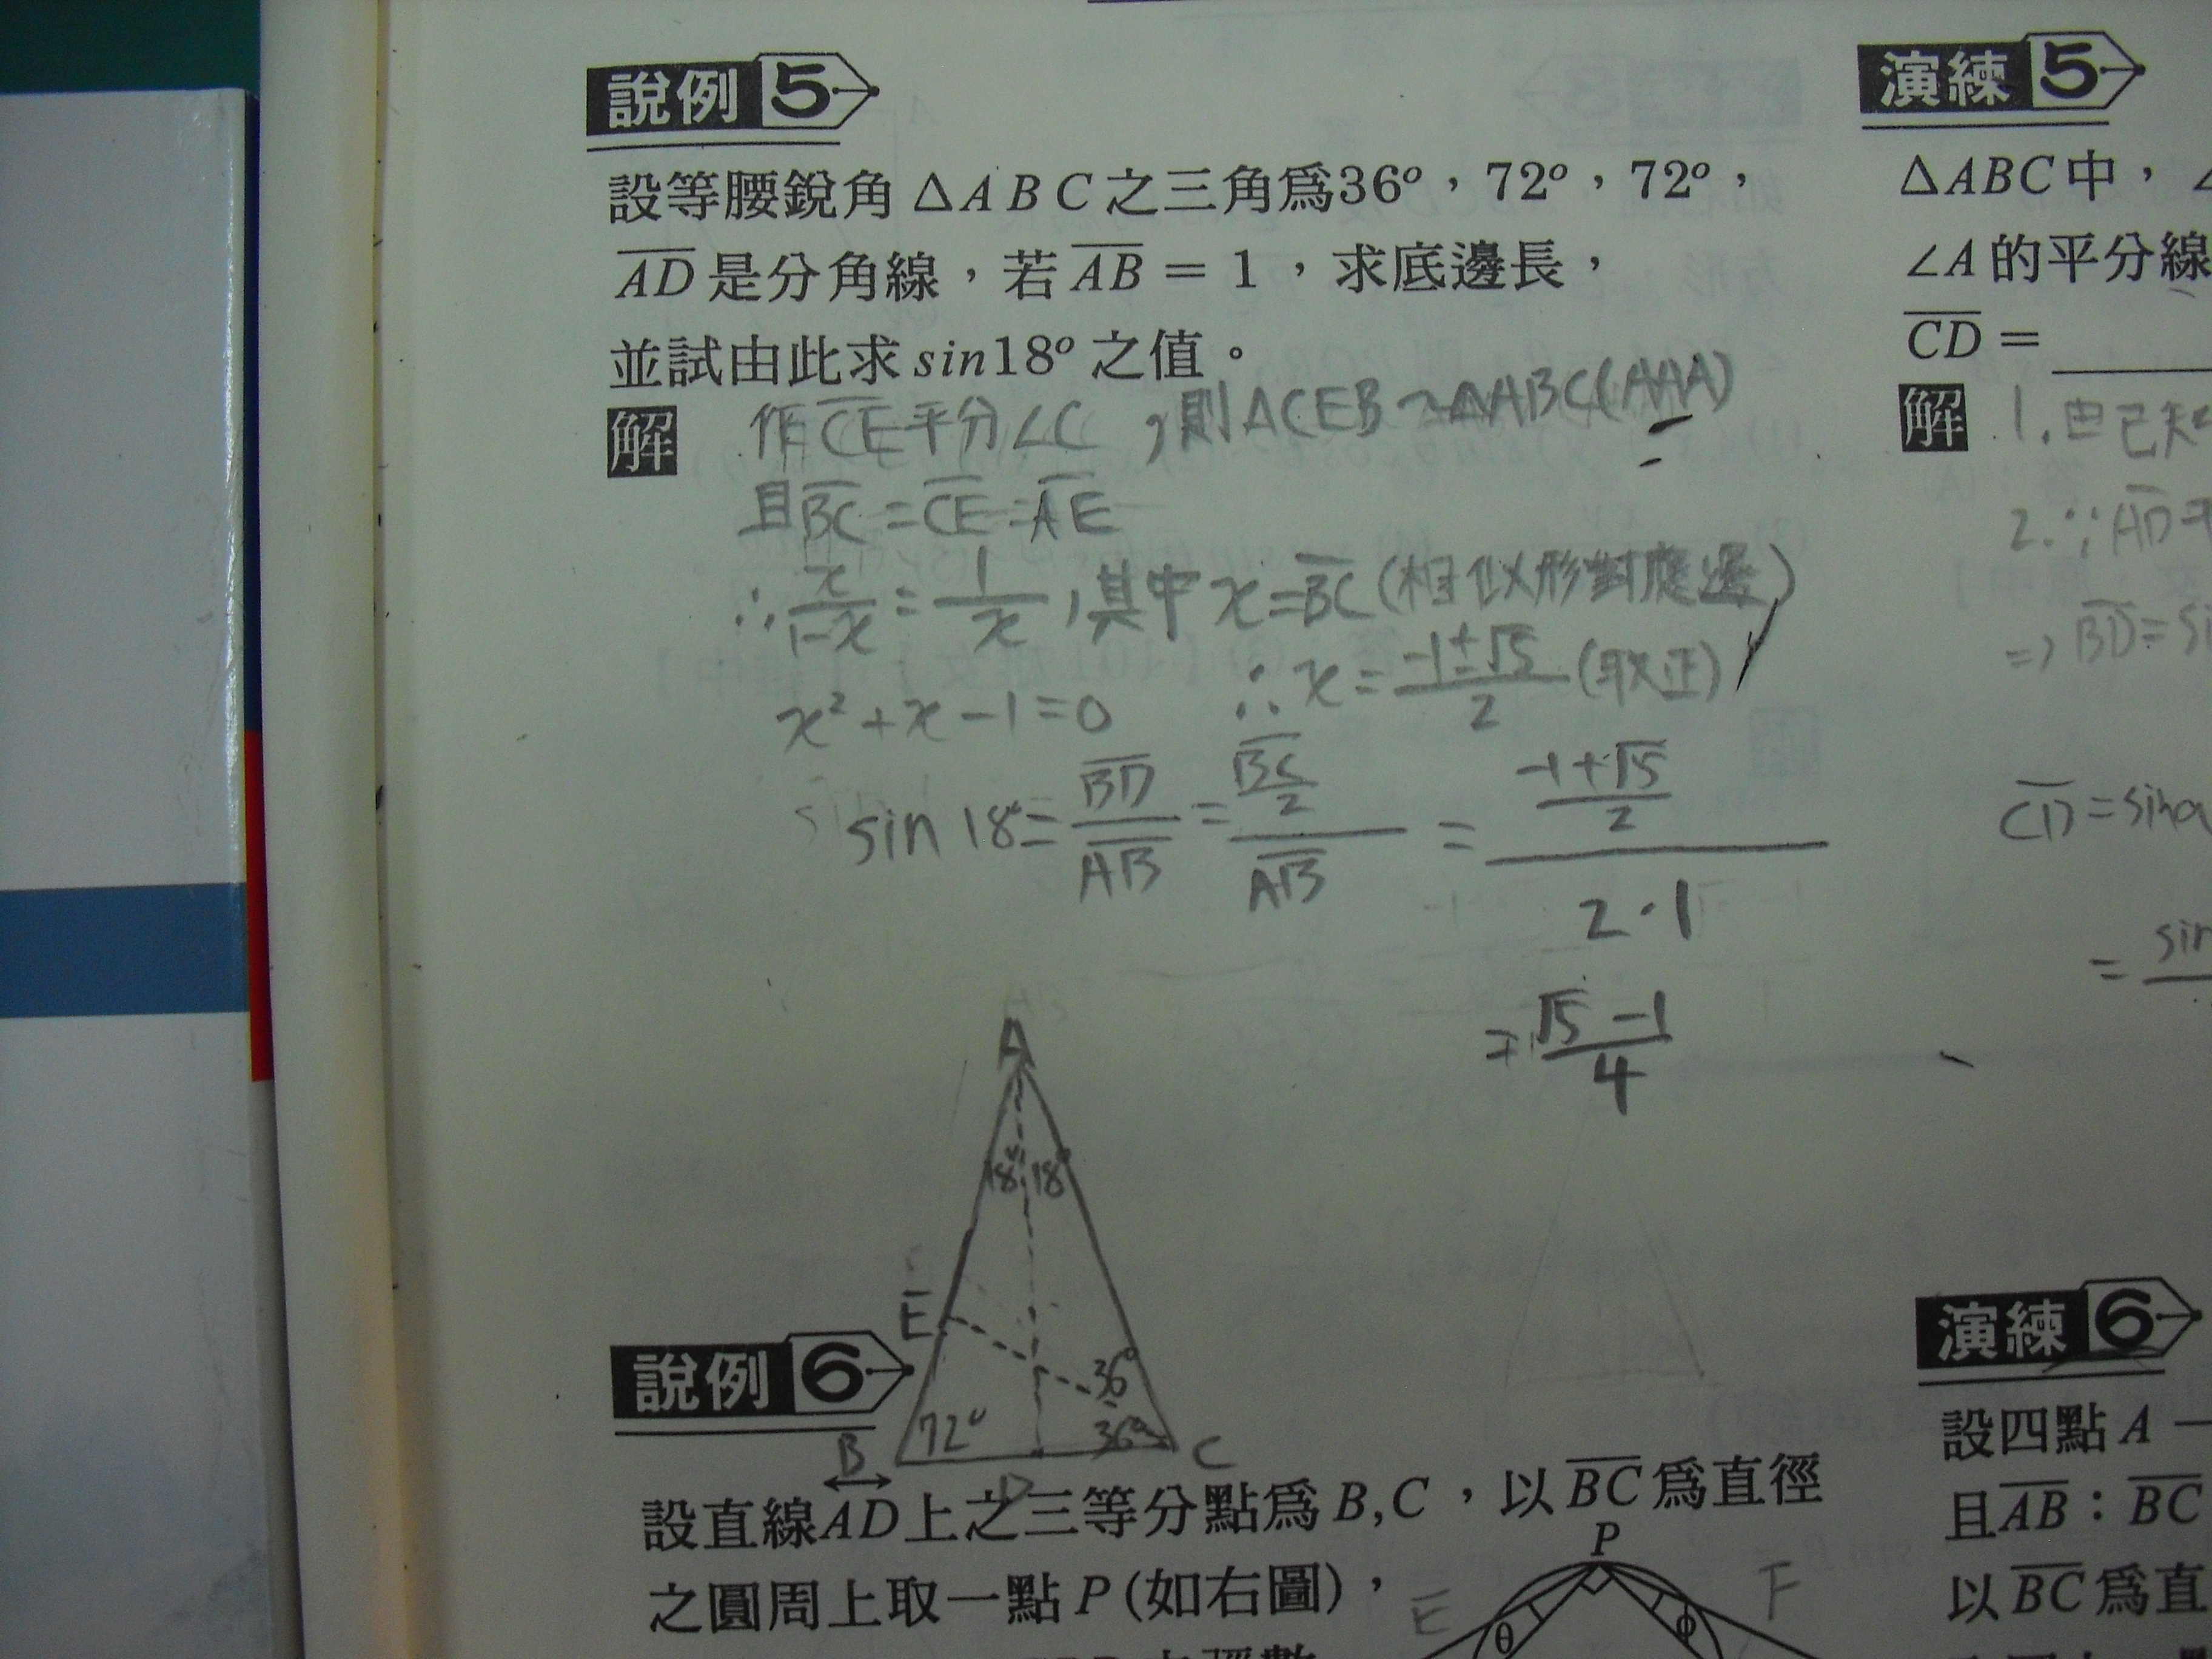 說例 5
設等腰銳角 ΔABC 之三角爲36°，72°，72°，
A̅D̅ 是分角線，若 A̅B̅ = 1，求底邊長，
並試由此求 sin18° 之值。
解 作C̅E̅平分∠C，則ΔCEB~ΔABC(AAA)
且B̅C̅=C̅E̅=A̅E̅
∴ x/(1-x) = 1/x，其中 x=B̅C̅(相似形對應邊)
x²+x-1=0 ∴x=(-1±√5)/2 (取正)
sin 18°= B̅D̅/A̅B̅ = (B̅C̅/2)/A̅B̅ = ((-1+√5)/2)/(2·1)
= (√5-1)/4
A
18° 18°
E
36°
72° 36°
B D C
說例 6
設直線AD上之三等分點爲 B,C，以 B̅C̅ 爲直徑
之圓周上取一點 P(如右圖)，
P
E F
θ φ
演練 5
ΔABC 中，∠
∠A 的平分線
C̅D̅ =
解 1.由已知
2.∵A̅D̅平
=> B̅D̅=
C̅D̅=sinα
= sin
演練 6
設四點 A
且A̅B̅：B̅C̅
以 B̅C̅ 爲直